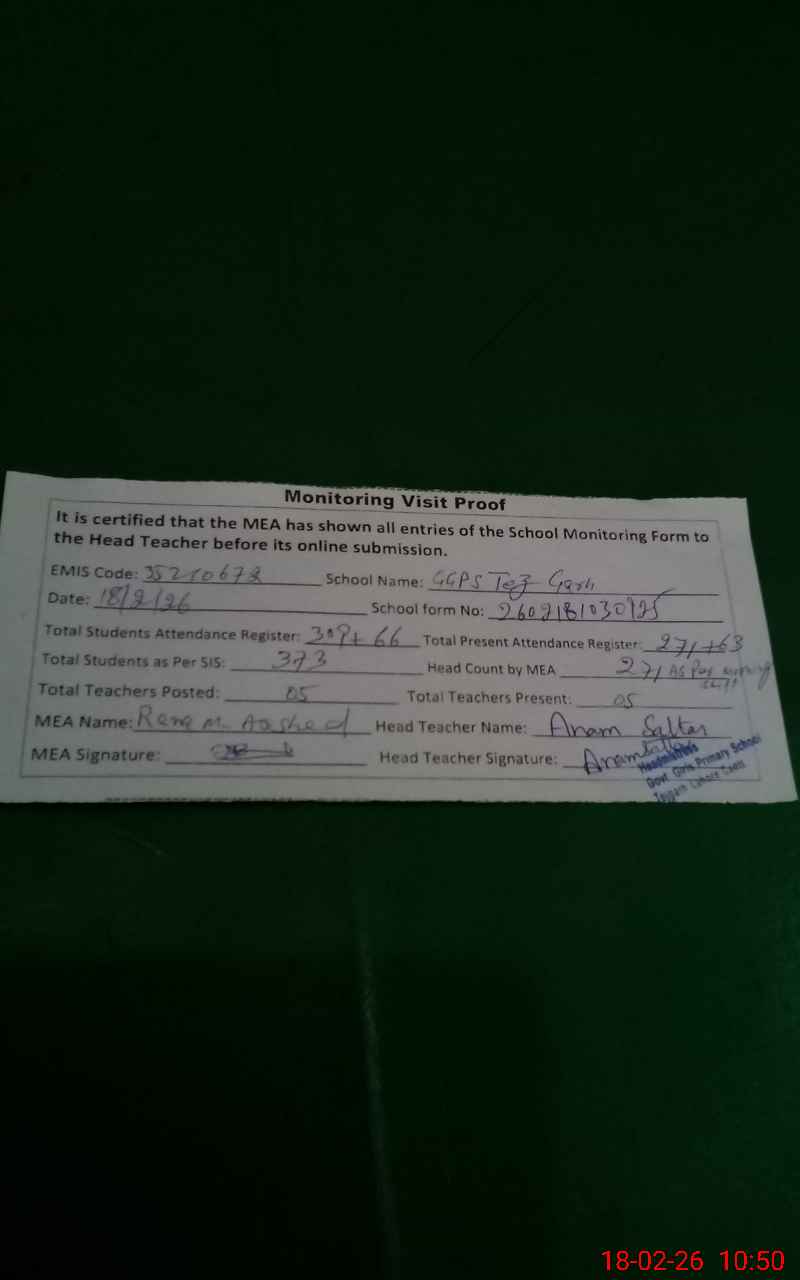 Monitoring Visit Proof
It is certified that the MEA has shown all entries of the School Monitoring Form to
the Head Teacher before its online submission.
EMIS Code: 35210678 School Name: GGPS Tez Garh
Date: 18/2/26 School form No: 2602181030925
Total Students Attendance Register: 309+66 Total Present Attendance Register: 271+63
Total Students as Per SIS: 373 Head Count by MEA 271 As Per morning
Total Teachers Posted: 05 Total Teachers Present: 05
MEA Name: Rana M. Aashed Head Teacher Name: Anam Sattar
MEA Signature: Head Teacher Signature: Anam Sattar
Headmistress
Govt. Girls Primary School
Lahore Cantt
18-02-26 10:50